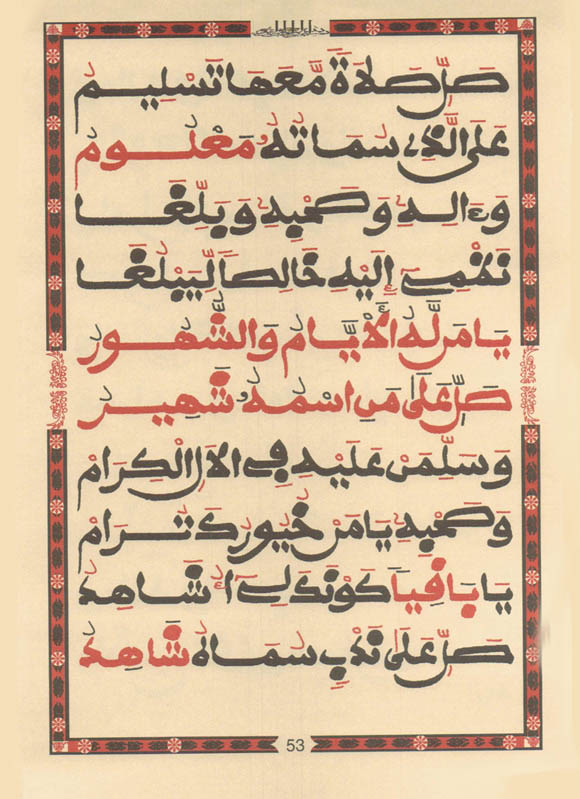 صَلِّ صَلَاةً مَّعَهَا تَسْلِيمُ
عَلَى الَّذِي سِمَاتُهُ مَعْلُومُ
وَءَالِهِ وَصَحْبِهِ وَبَلِّغَا
نَفْعِي إِلَيْهِ خَالِصًا لِّيَبْلُغَا
يَا مَن لَّهُ الْأَيَّامُ وَالشُّهُورُ
صَلِّ عَلَى مَنِ اسْمُهُ شَهِيرُ
وَسَلِّمَنْ عَلَيْهِ فِي الْآلِ الْكِرَامْ
وَصَحْبِهِ يَا مَنْ خُيُورُكَ تُرَامْ
يَا بَاقِيًا كَوْنَكَ لِي أُشَاهِدُ
صَلِّ عَلَى نَدْبٍ سُمَاهُ شَاهِدُ
53